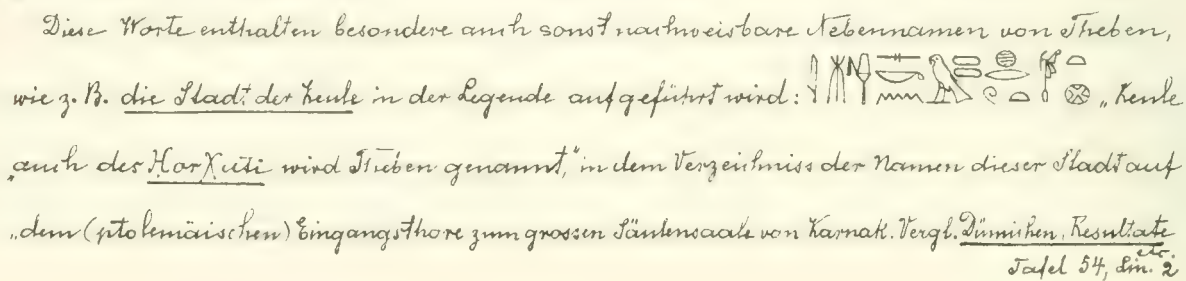 Diese Worte enthalten besondere auch sonst nachweisbare Nebennamen von Theben,
wie z. B. die Stadt der Keule in der Legende aufgeführt wird: „Keule
„auch des HorXuti wird Theben genannt,“ in dem Verzeichniss der Namen dieser Stadt auf
„dem (ptolemäischen) Eingangsthore zum grossen Säulensaale von Karnak. Vergl. Dümichen, Resultate
etc.
Tafel 54, Lin. 2